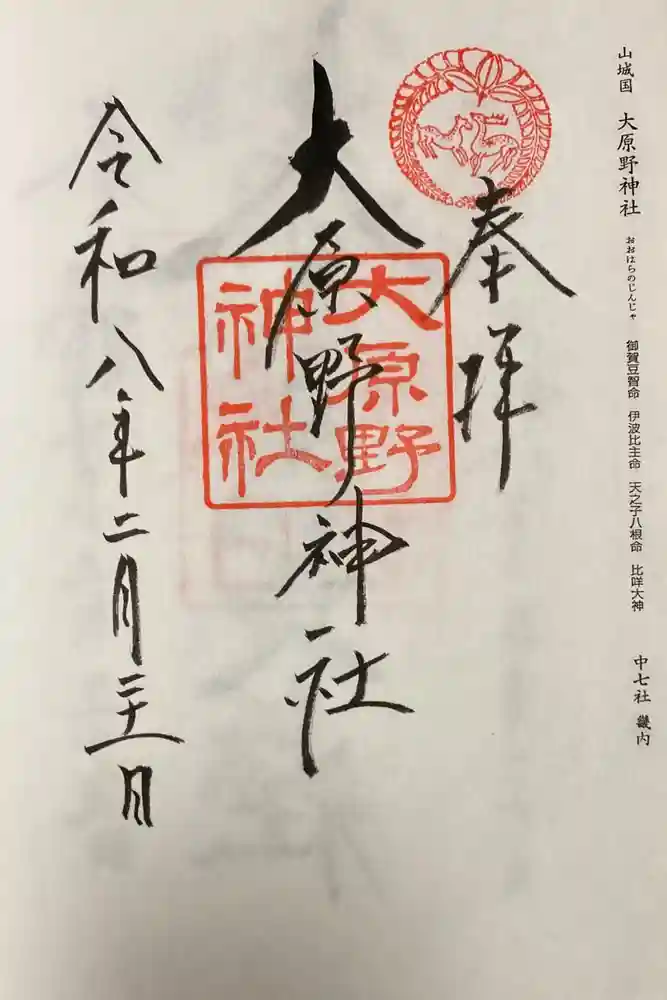 山城国 大原野神社 おおはらのじんじゃ 御賀豆智命 伊波比主命 天之子八根命 比咩大神 中七社 畿内
奉拝
大原野神社
大原野
神社
令和八年二月二十一日